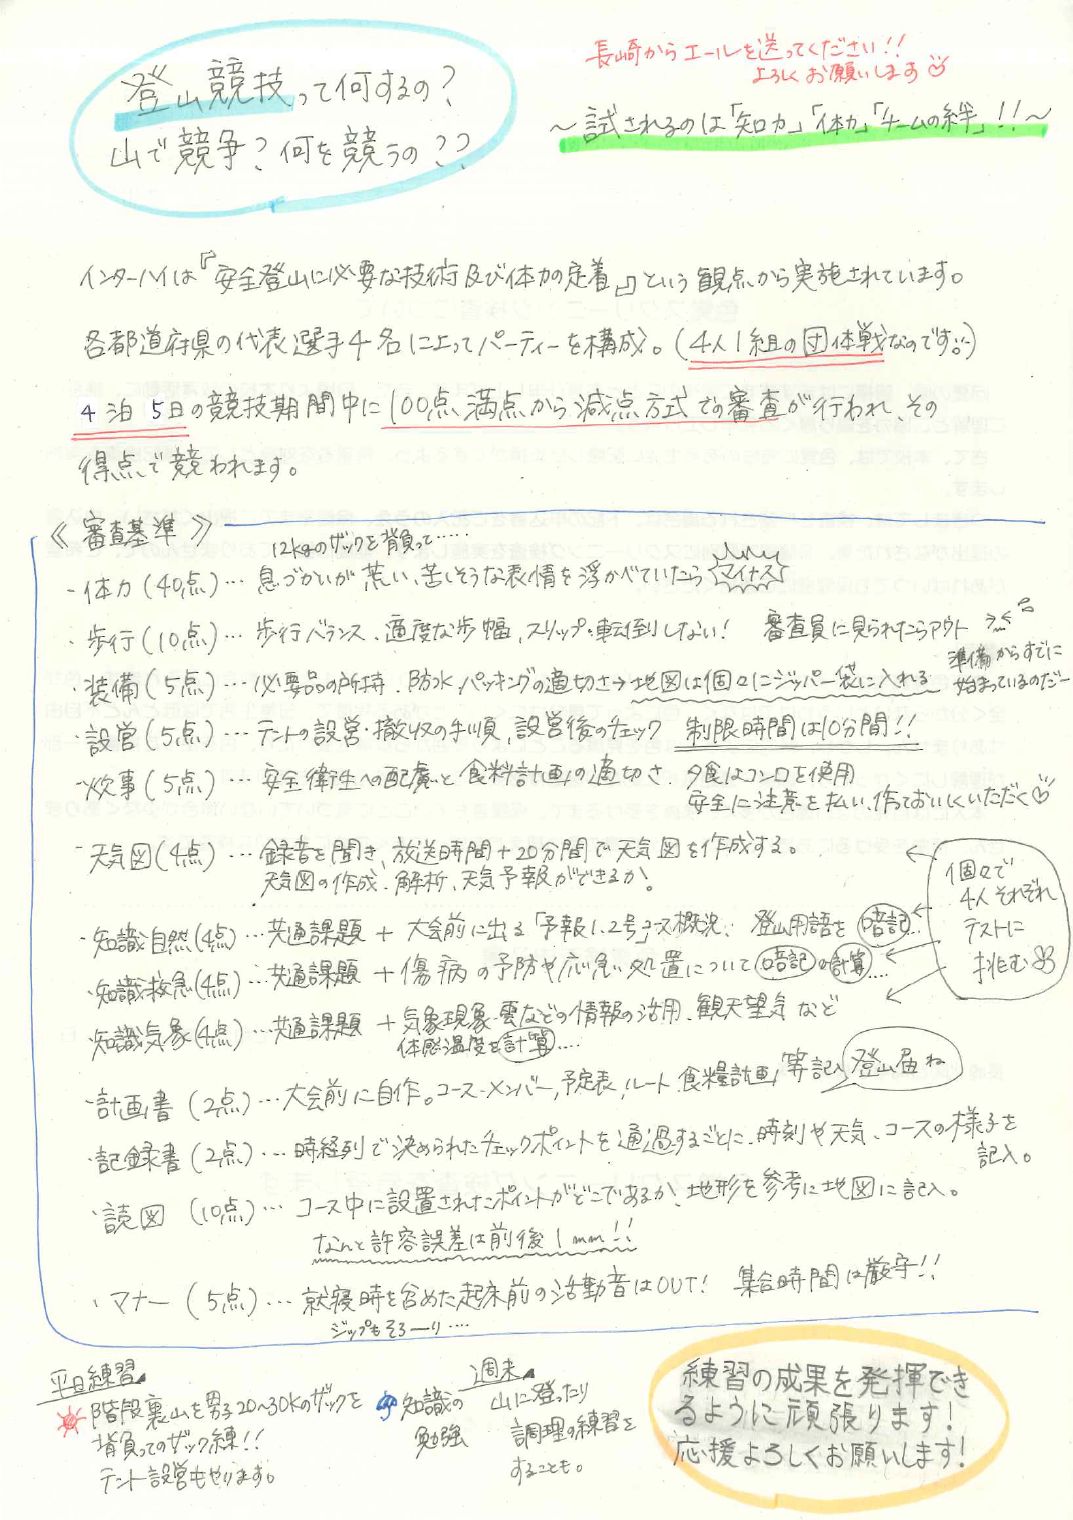 登山競技って何するの?
山で競争?何を競うの??
長崎からエールを送ってください!!
よろしくお願いします
～試されるのは「知力」「体力」「チームの絆」!!～
インターハイは『安全登山に必要な技術及び体力の定着』という観点から実施されています。
各都道府県の代表選手4名によってパーティーを構成。(4人1組の団体戦なのです。)
4泊5日の競技期間中に100点満点から減点方式での審査が行われ、その
得点で競われます。
《審査基準》
12kgのザックを背負って……
・体力(40点)…息づかいが荒い、苦しそうな表情を浮かべていたらマイナス
・歩行(10点)…歩行バランス、適度な歩幅、スリップ・転倒しない! 審査員に見られたらアウト
・装備(5点)…必要品の所持、防水、パッキングの適切さ→地図は個々にジッパー袋に入れる
準備からすでに
始まっているのだー
・設営(5点)…テントの設営・撤収の手順、設営後のチェック 制限時間は10分間!!
・炊事(5点)…安全衛生への配慮と食料計画の適切さ 夕食はコンロを使用
安全に注意を払い、作っておいしくいただく
・天気図(4点)…録音を聞き、放送時間+20分間で天気図を作成する。
天気図の作成、解析、天気予報ができるか。
・知識自然(4点)…共通課題+大会前に出る「予報1、2号」コース概況、登山用語を暗記…
・知識救急(4点)…共通課題+傷病の予防や応急処置について暗記や計算….
・知識気象(4点)…共通課題+気象現象、雲などの情報の活用、観天望気など
体感温度を計算….
個々で
4人それぞれ
テストに
挑む
・計画書(2点)…大会前に自作。コース・メンバー、予定表、ルート、食糧計画等記入 登山届ね
・記録書(2点)…時経列で決められたチェックポイントを通過するごとに、時刻や天気、コースの様子を
記入。
・読図(10点)…コース中に設置されたポイントがどこであるか、地形を参考に地図に記入。
なんと許容誤差は前後1mm!!
・マナー(5点)…就寝時を含めた起床前の活動音はOUT! 集合時間は厳守!!
ジップもそろーり….
平日練習
階段、裏山を男子20～30Kのザックを
背負ってのザック練!!
テント設営もやります。
知識の
勉強
週末
山に登ったり
調理の練習を
することも。
練習の成果を発揮でき
るように頑張ります!
応援よろしくお願いします!